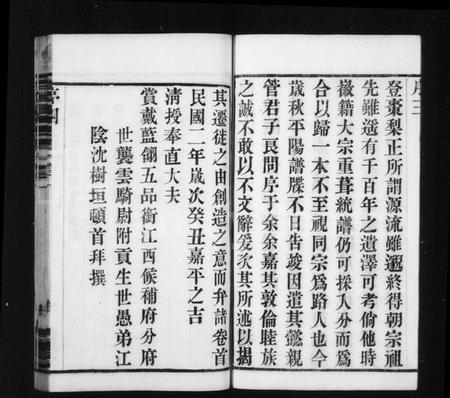 序三
登棗梨正所謂源流雖遡終得朝宗祖
先雖遥有千百年之遺澤可考倘他時
徽籍大宗重葺統譜仍可採入分而爲
合以歸一本不至視同宗爲路人也今
歲秋平陽譜牒不日告竣因遣其懿親
管君子艮問序于余余嘉其敦倫睦族
之誠不敢以不文辭爰次其所述以揭
其遷徒之由創造之意而弁諸卷首
民國二年歲次癸丑嘉平之吉
淸授奉直大夫
賞戴藍翎五品銜江西候補府分府
世襲雲騎尉附貢生世愚弟江
陰沈樹垣頓首拜撰
序四